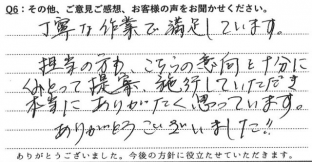 Q6：その他、ご意見ご感想、お客様の声をお聞かせください。
丁寧な作業で満足しています。
担当の方も こちらの意向を十分に
くみとって提案、施行していただき
本当にありがたく思っています。
ありがとうございました!!
ありがとうございました。今後の方針に役立たせていただきます。